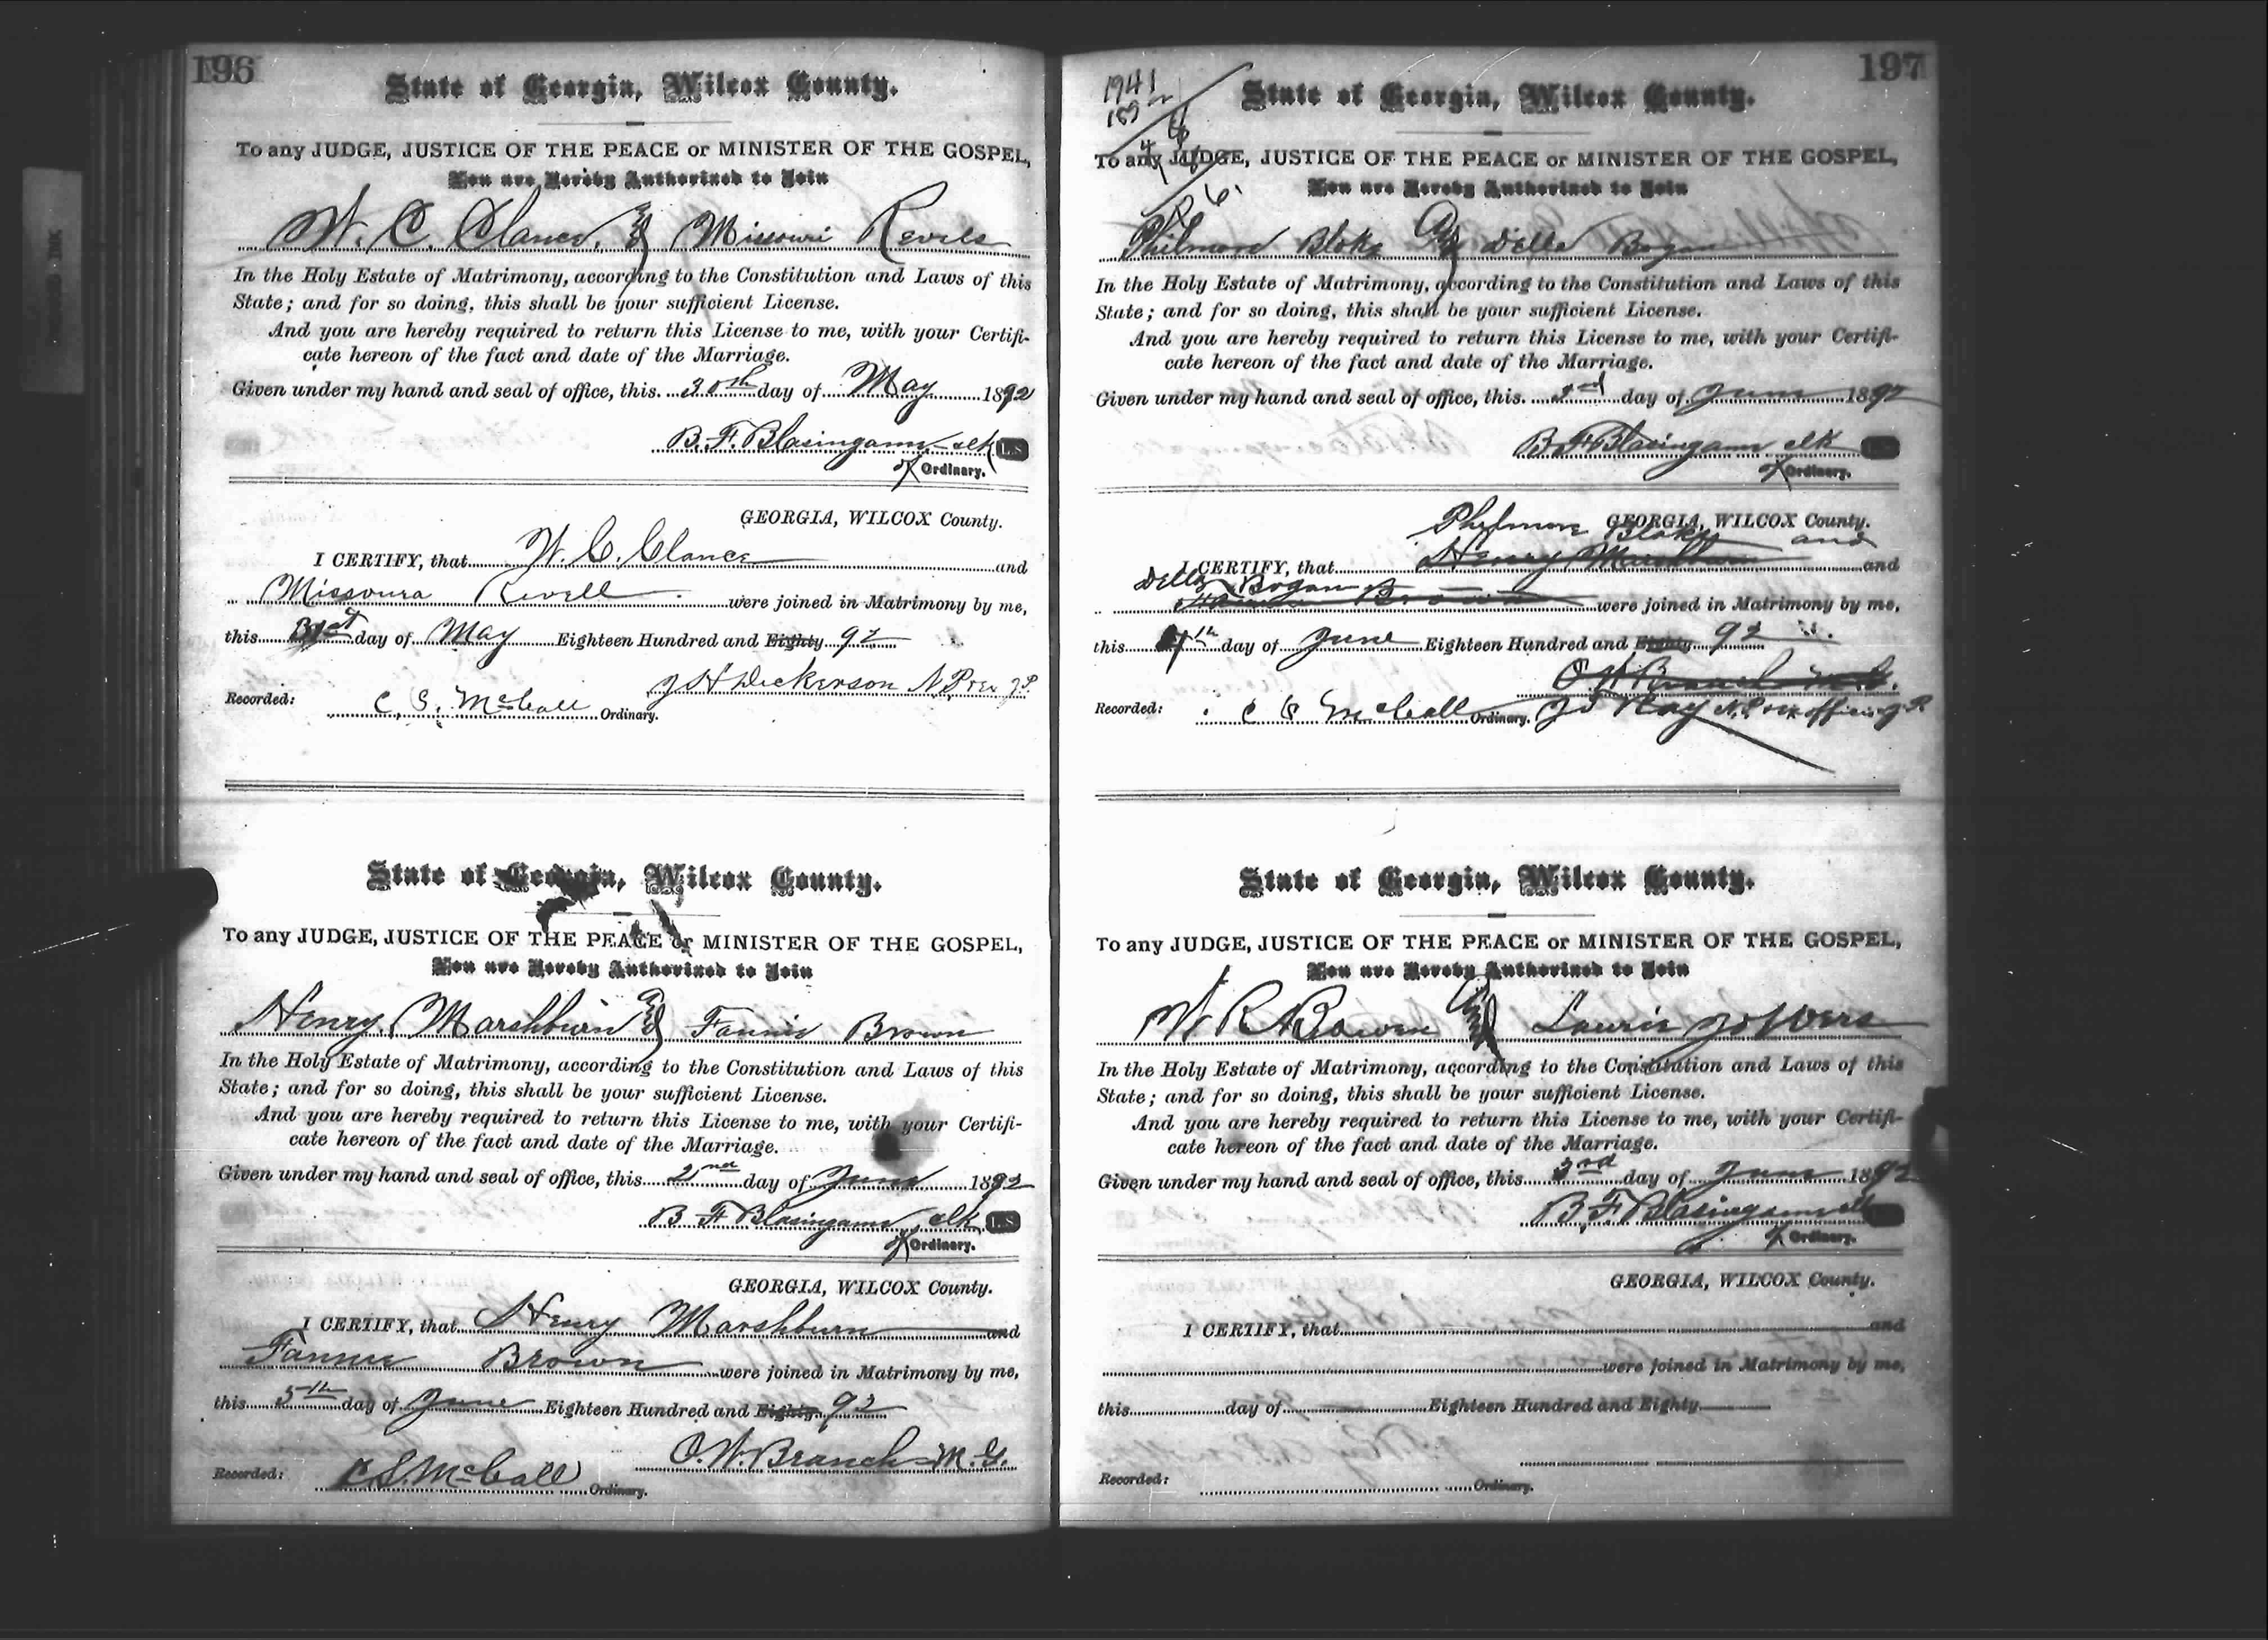 196
State of Georgia, Wilcox County.
To any JUDGE, JUSTICE OF THE PEACE or MINISTER OF THE GOSPEL,
You are Hereby Authorized to Join
W. C. Clance, & Missouri Revels
In the Holy Estate of Matrimony, according to the Constitution and Laws of this
State; and for so doing, this shall be your sufficient License.
And you are hereby required to return this License to me, with your Certifi-
cate hereon of the fact and date of the Marriage.
Given under my hand and seal of office, this 30th day of May 1892
B. F. Blasingame clk L.S
of Ordinary.
GEORGIA, WILCOX County.
I CERTIFY, that W. C. Clance and
Missoura Revell were joined in Matrimony by me,
this 31st day of May Eighteen Hundred and Eighty 92
J H Dickerson N.P. & Ex J.P.
Recorded: C. S. McCall Ordinary.
State of Georgia, Wilcox County.
To any JUDGE, JUSTICE OF THE PEACE or MINISTER OF THE GOSPEL,
You are Hereby Authorized to Join
Henry Marshburn & Fannie Brown
In the Holy Estate of Matrimony, according to the Constitution and Laws of this
State; and for so doing, this shall be your sufficient License.
And you are hereby required to return this License to me, with your Certifi-
cate hereon of the fact and date of the Marriage.
Given under my hand and seal of office, this 2nd day of June 1892
B F Blasingame, clk L.S
of Ordinary.
GEORGIA, WILCOX County.
I CERTIFY, that Henry Marshburn and
Fannie Brown were joined in Matrimony by me,
this 5th day of June Eighteen Hundred and Eighty 92
O. W. Branch M. G.
Recorded: C S. McCall Ordinary.
197
1941
189
State of Georgia, Wilcox County.
To any JUDGE, JUSTICE OF THE PEACE or MINISTER OF THE GOSPEL,
You are Hereby Authorized to Join
Philmore Blake & Della Bogan
In the Holy Estate of Matrimony, according to the Constitution and Laws of this
State; and for so doing, this shall be your sufficient License.
And you are hereby required to return this License to me, with your Certifi-
cate hereon of the fact and date of the Marriage.
Given under my hand and seal of office, this 3rd day of June 1892
B F Blasingame clk
of Ordinary.
GEORGIA, WILCOX County.
Phylmore Blake and
I CERTIFY, that Henry Marshburn and
Della Bogan
Fannie Brown were joined in Matrimony by me,
this 4th day of June Eighteen Hundred and Eighty 92
O W Branch M. G.
Recorded: C S McCall Ordinary. J S Ray N.P. & ex officio J P.
State of Georgia, Wilcox County.
To any JUDGE, JUSTICE OF THE PEACE or MINISTER OF THE GOSPEL,
You are Hereby Authorized to Join
W. R. Bowen and Laurie Jowers
In the Holy Estate of Matrimony, according to the Constitution and Laws of this
State; and for so doing, this shall be your sufficient License.
And you are hereby required to return this License to me, with your Certifi-
cate hereon of the fact and date of the Marriage.
Given under my hand and seal of office, this 3rd day of June 1892
B. F. Blasingame clk
of Ordinary.
GEORGIA, WILCOX County.
I CERTIFY, that and
were joined in Matrimony by me,
this day of Eighteen Hundred and Eighty
Recorded: Ordinary.